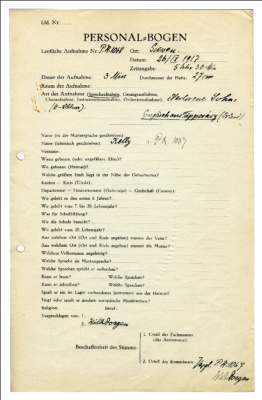 Lfd. Nr.
PERSONAL-BOGEN
Lautliche Aufnahme Nr. PK 1068 Ort:
Datum: 26/IV 1917
Zeitangabe: 5 Uhr 30 Min
Dauer der Aufnahme: 3 Min Durchmesser der Platte: 27 cm
Raum der Aufnahme:
Art der Aufnahme (Sprechaufnahme, Gesangsaufnahme,
Choraufnahme, Instrumentenaufnahme, Orchesteraufnahme):
Tipperary
Name (in der Muttersprache geschrieben):
Name (lateinisch geschrieben): Kelly PK 1067
Vorname:
Wann geboren (oder ungefähres Alter)?
Wo geboren (Heimat)?
Welche größere Stadt liegt in der Nähe des Geburtsortes?
Kanton – Kreis (Ujezd):
Departement – Gouvernement (Gubernija) – Grafschaft (County):
Wo gelebt in den ersten 6 Jahren?
Wo gelebt vom 7. bis 20. Lebensjahr?
Was für Schulbildung?
Wo die Schule besucht?
Wo gelebt vom 20. Lebensjahr?
Aus welchem Ort (Ort und Kreis angeben) stammt der Vater?
Aus welchem Ort (Ort und Kreis angeben) stammt die Mutter?
Welchem Volksstamm angehörig?
Welche Sprache als Muttersprache?
Welche Sprachen spricht er außerdem?
Kann er lesen? Welche Sprachen?
Kann er schreiben? Welche Sprachen?
Spielt er ein im Lager vorhandenes Instrument aus der Heimat?
Singt oder spielt er modern europäische Musikweisen?
Religion: Beruf:
Vorgeschlagen von: 1.
2. Wilh. Doegen
Beschaffenheit der Stimme:
1. Urteil des Fachmannes
(des Assistenten):
2. Urteil des Kommissars: Vergl. PK 1067
Wilh. Doegen